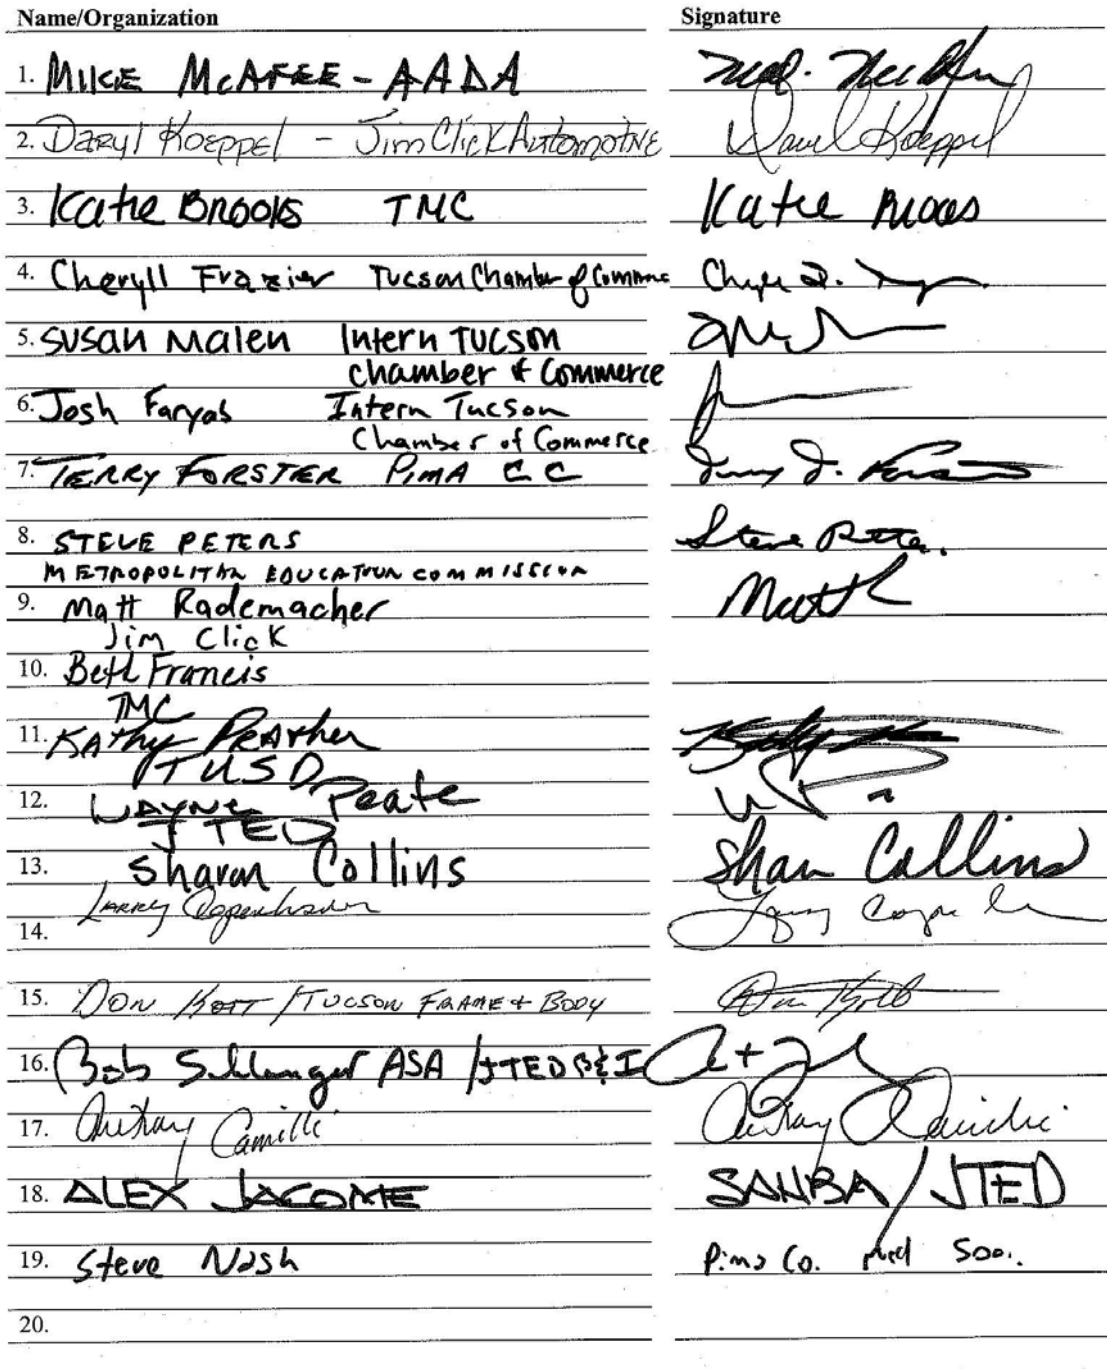 Name/Organization Signature
1. MIKE McAFEE - AADA
2. Daryl Koeppel - Jim Click Automotive Daryl Koeppel
3. Katie Brooks TMC Katie Brooks
4. Cheryll Frazier Tucson Chamber of Commerce
5. Susan Malen Intern Tucson
Chamber of Commerce
6. Josh Faryab Intern Tucson
Chamber of Commerce
7. TERRY FORSTER PIMA CC
8. STEVE PETERS Steve Peters
METROPOLITAN EDUCATION COMMISSION
9. Matt Rademacher Matt
Jim Click
10. Beth Francis
TMC
11. Kathy Prather
TUSD
12. WAYNE Peate
JTED
13. Sharon Collins Sharon Collins
Larry
14.
15. DON KOTT / TUCSON FRAME + BODY
16. Bob Schlanger ASA / JTED B&I
17. Anthony Camilli Anthony Camilli
18. ALEX JACOME SAHBA / JTED
19. Steve Nash Pima Co. Med Soc.
20.